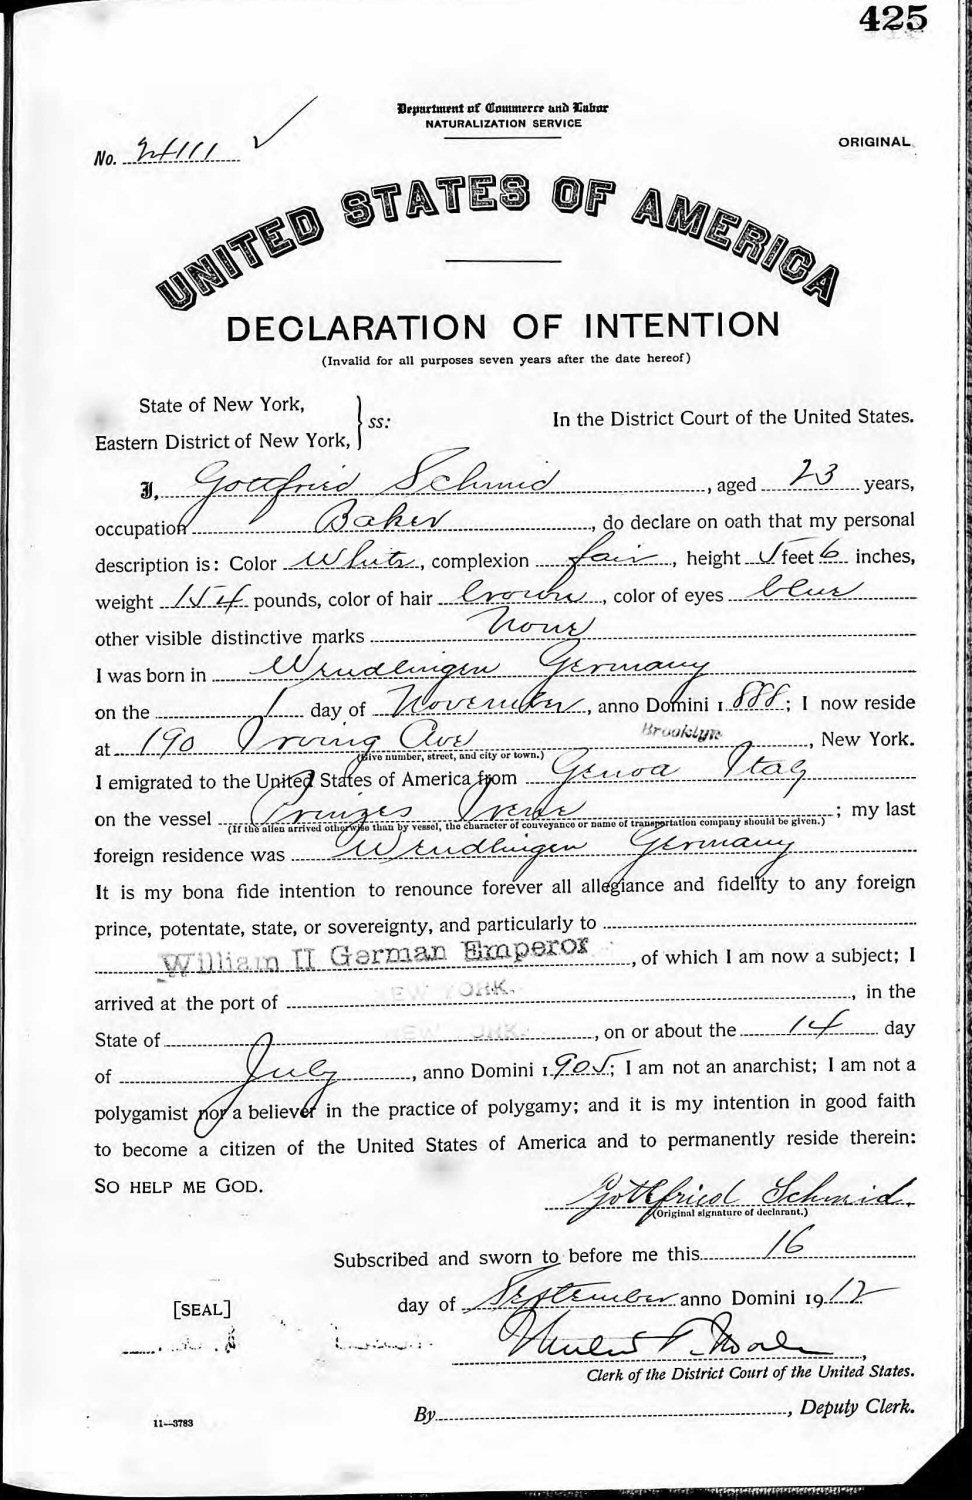 425
Department of Commerce and Labor
NATURALIZATION SERVICE
ORIGINAL
No. 24111
UNITED STATES OF AMERICA
DECLARATION OF INTENTION
(Invalid for all purposes seven years after the date hereof)
State of New York,
Eastern District of New York, } ss:
In the District Court of the United States.
I, Gottfried Schmid, aged 23 years,
occupation Baker, do declare on oath that my personal
description is: Color White, complexion fair, height 5 feet 6 inches,
weight 154 pounds, color of hair brown, color of eyes blue
other visible distinctive marks None
I was born in Wendlingen Germany
on the 1 day of November, anno Domini 1888; I now reside
at 190 Irving Ave Brooklyn, New York.
(Give number, street, and city or town.)
I emigrated to the United States of America from Genoa Italy
on the vessel Prinzes Irene; my last
(If the alien arrived otherwise than by vessel, the character of conveyance or name of transportation company should be given.)
foreign residence was Wendlingen Germany
It is my bona fide intention to renounce forever all allegiance and fidelity to any foreign
prince, potentate, state, or sovereignty, and particularly to
William II German Emperor, of which I am now a subject; I
arrived at the port of NEW YORK., in the
State of NEW YORK., on or about the 14 day
of July, anno Domini 1905; I am not an anarchist; I am not a
polygamist nor a believer in the practice of polygamy; and it is my intention in good faith
to become a citizen of the United States of America and to permanently reside therein:
SO HELP ME GOD.
Gottfried Schmid.
(Original signature of declarant.)
Subscribed and sworn to before me this 16
[SEAL]
day of September anno Domini 1912
Clerk of the District Court of the United States.
By, Deputy Clerk.
11—3783